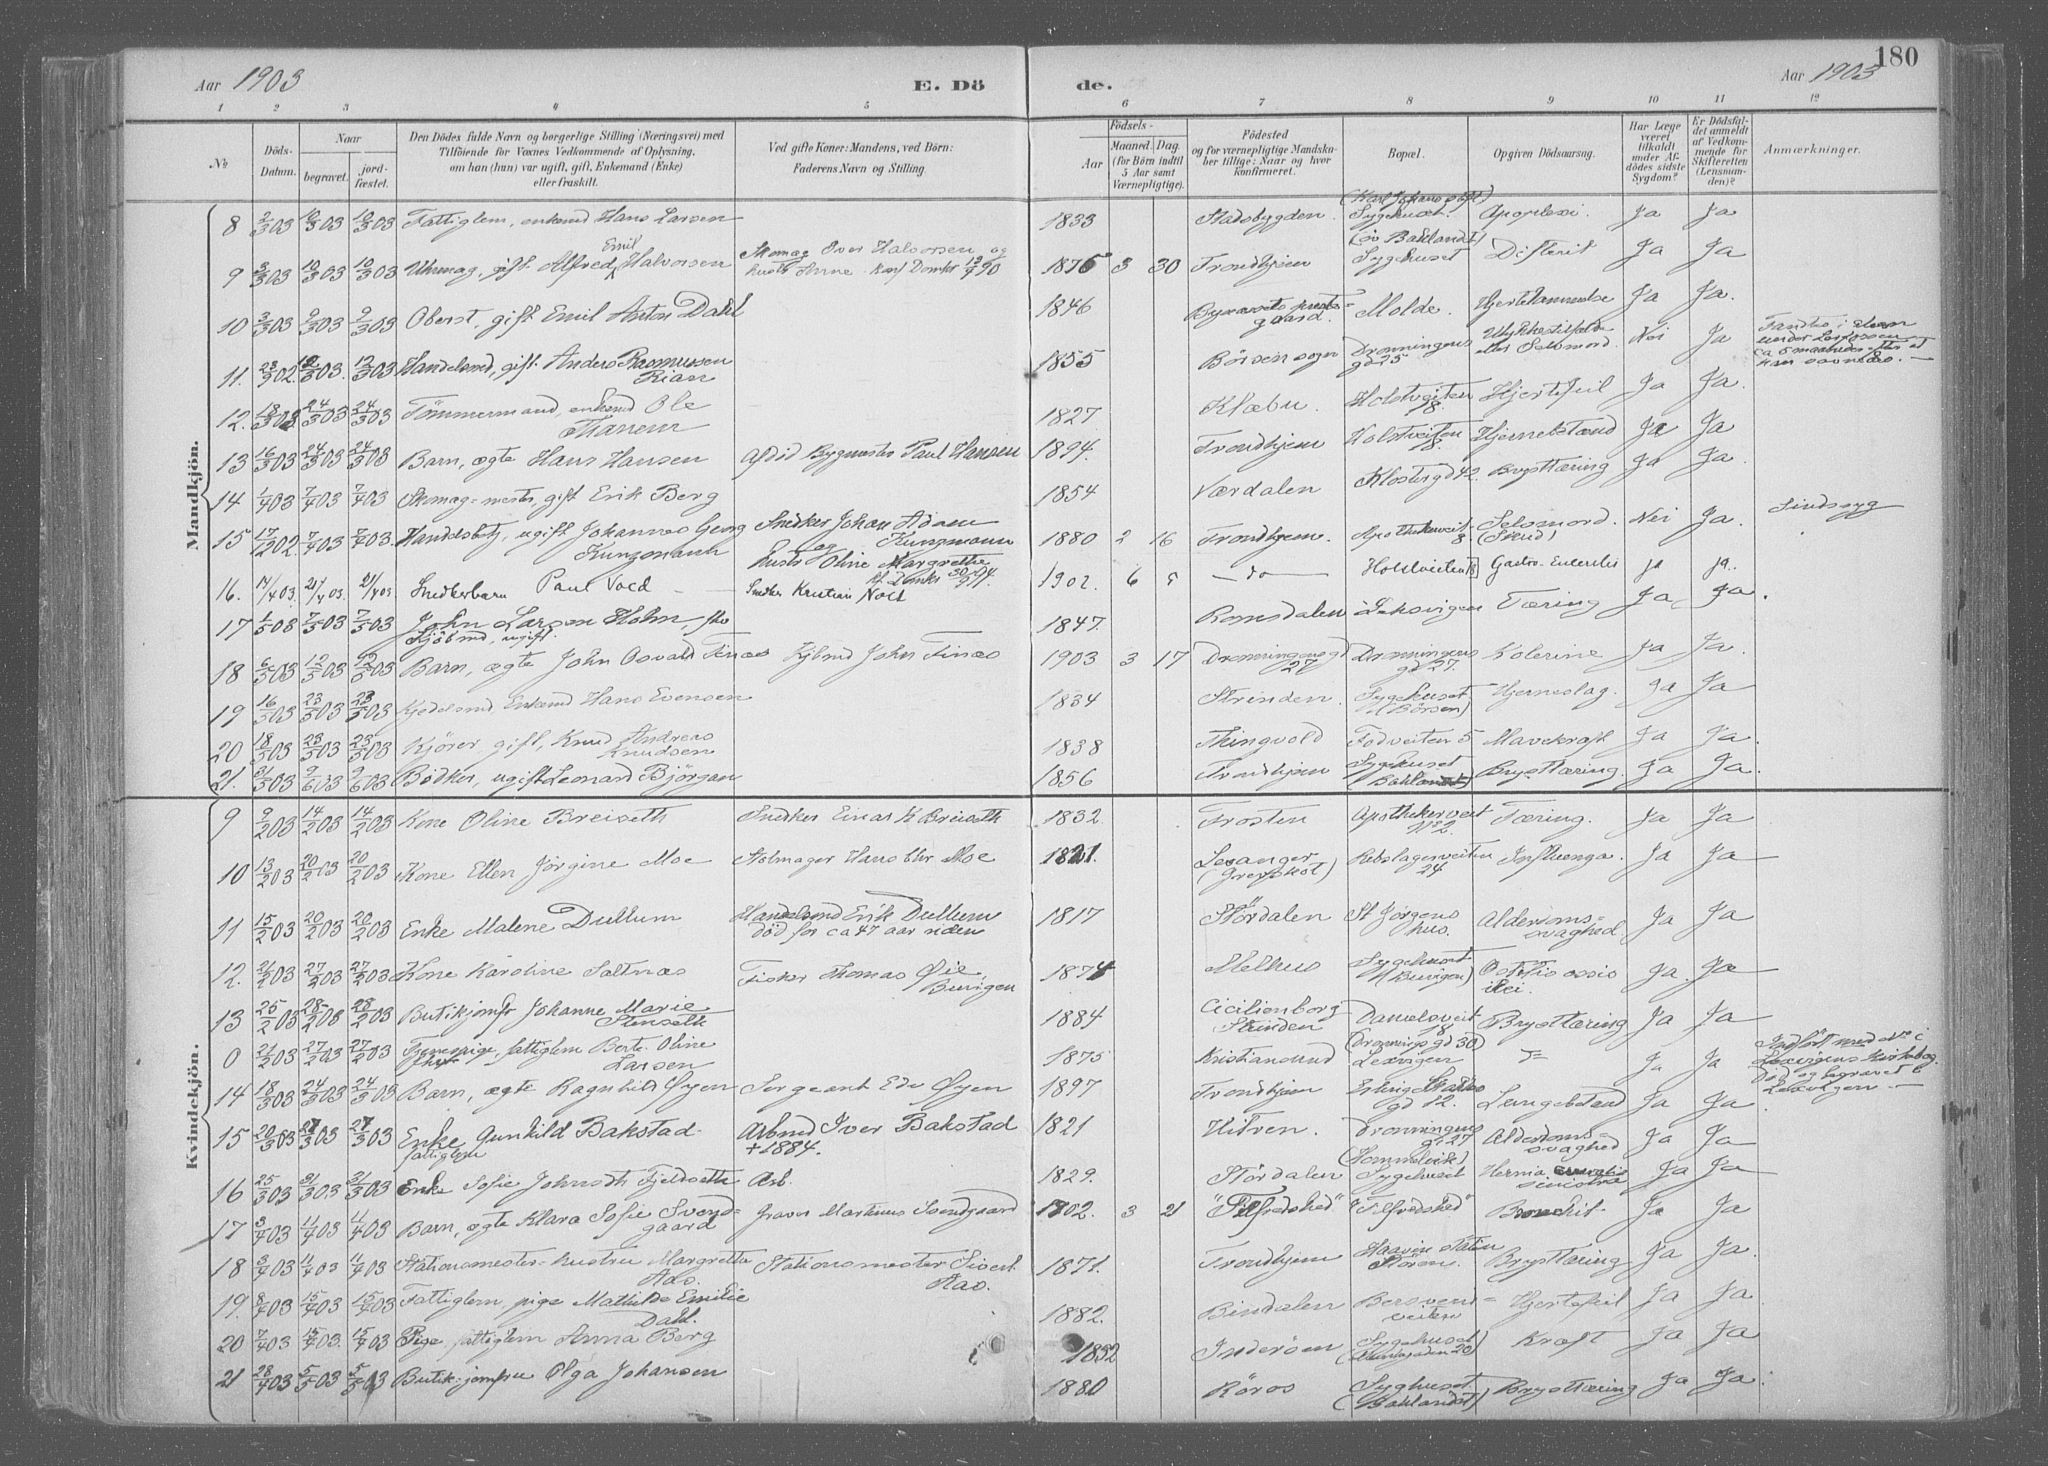 180
Aar 1903
E. Dö
de.
Aar 1903
1 2 3 4 5 6 7 8 9 10 11 12
No
Döds-Datum.
Naar
begravet.
jord-fæstet.
Den Dödes fulde Navn og borgerlige Stilling (Næringsvei) med
Tilföiende for Voxnes Vedkommende af Oplysning,
om han (hun) var ugift, gift, Enkemand (Enke)
eller fraskilt.
Ved gifte Koner: Mandens, ved Börn:
Faderens Navn og Stilling.
Födsels-
Aar
Maaned. Dag.
(for Börn indtil
5 Aar samt
Værnepligtige).
Födested
og for værnepligtige Mandska-
ber tillige: Naar og hvor
konfirmeret.
Bopæl.
Opgiven Dödsaarsag.
Har Læge
været
tilkaldt
under Af-
dödes sidste
Sygdom?
Er Dödsfal-
det anmeldt
af Vedkom-
mende for
Skifteretten
(Lensman-
den)?
Anmærkninger.
Mandkjön.
8 2/3 03 10/3 03 10/3 03 Fattiglem, enkemd Hans Larsen 1833 Stadsbygden. (Karl Johans gt) Sygehuset. Apoplexi. Ja Ja
9 3/3 03 10/3 03 10/3 03 Uhrmag, gift Alfred Emil Halvorsen Skomag Iver Halvorsen og hustr Anne 1875 3 30 Trondhjem (öv Baklandt) Sygehuset Difterit Ja Ja
10 3/3 03 9/3 03 9/3 03 Oberst, gift Emil Anton Dahl 1846 Molde. Hjertelammelse Ja Ja.
11. 12/3 03. 12/3 03 Handelsmd, gift. Anders Rasmussen Rian 1855 Börsen sogn Dronningens gd 25 Ulykkestilfælde eller Selvmord. Nei Ja
12. 24/3 03 24/3 03 Tömmermand, enkemd Ole Tanem 1827 Klæbu. Holstveiten 18. Hjertefeil Ja Ja.
13 16/3 03 24/3 03 24/3 03 Barn, ægte Hans Hansen Afdöd Bygmester Paul Hansen 1894. Trondhjem Holstveiten 18. Hjernebetænd Ja Ja
14 1/4 03 7/4 03 7/4 03 Skomag-mestr, gift Erik Berg 1854 Værdalen Klostergd 42. Brysttæring Ja Ja.
15 17/12 02. 7/4 03 7/4 03. Handelsbtj, ugift Johannes Georg Kunzmann Snedker Johan Adam Kunzmann og Hustr Oline Margrethe 1880 2 16 Trondhjem. Apothekerveit 8. Selvmord. (Skud) Nei Ja. Sindssyg
16. 14/4 03. 21/4 03. 21/4 03 Snedkerbarn Paul Vold Snedker Kristian Vold 1902. 6 5 — do — Holstveiten 18 Gastro-Enteritis ja ja.
17 1/5 03 7/5 03 7/5 03 John Larsen Holm, Sjöbmd, ugift. 1847. Romsdalen Leksvigen Tæring Ja Ja.
18 6/5 03 12/5 03 12/5 03 Barn, ægte John Osvald Finæs John Finæs 1903 3 17 Dronningens gd 27 Dronningens gd 27. Kolerine Ja Ja.
19 16/5 03 23/5 03 23/5 03 Kjedelsmd Enkemd Hans Evensen 1834 Strinden. Sygehuset (Börsen) Hjerneslag. Ja Ja
20 18/5 03 23/5 03 23/5 03 Kjörer, gift, Knud Andreas Knudsen 1838 Thingvold Fodveiten 5 Mavekræft Ja Ja.
21. 31/5 03 9/6 03 9/6 03 Bödker, ugift Leonard Björgan 1856 Trondhjem Sygehuset Baklandet) Brysttæring. Ja Ja.
Kvindekjön.
9 9/2 03 14/2 03 14/2 03 Kone Oline Breiseth Snedker Einar K Breiseth 1832 Frosten Apothekerveit No 2. Tæring. Ja Ja
10 13/2 03 20/2 03 20/2 03 Kone Ellen Jörgine Moe Stolmager Hans Chr Moe 1821. Levanger Rebslagerveiten 24 Influenza. Ja Ja
11 15/2 03 20/2 03 20/2 03 Enke Malene Dullum Handelsmd Erik Dullum död for ca 47 aar siden 1817 Stördalen St Jørgens hus. Alderdoms-svaghed. Ja Ja
12. 21/2 03 27/2 03 27/2 03 Kone Karoline Saltnæs Fisker Thomas Øie, Buvigen 1874 Melhus Sygehuset (Buvigen) Ja. Ja
13 25/2 03 28/2 03 28/2 03 Butikjomfr Johanne Marie Stenseth 1884 Cicilienborg Strinden Danielsveit 18 Brysttæring Ja Ja
0 21/2 03 27/2 03 27/2 03 Tjenerpige, fattiglem Berte Oline Larsen 1875 Kristiansund (Dronnings gd 30) Ja Ja Indført med No i Lexvigens kirkebog Död og begravet i Lexvigen —
14 18/3 03 24/3 03 24/3 03 Barn, ægte Ragnhild Øyen Sergeant Ede Øyen 1897 Trondhjem gd 12. Lungebetænd Ja Ja.
15 20/3 03 27/3 03 27/3 03 Enke Gunhild Bakstad fattiglem Arbmd Iver Bakstad + 1884. 1821 Hitren. Dronningens gd 27 Alderdoms-svaghed Ja Ja
16 25/3 03 31/3 03 31/3 03 Enke Sofie Johnsdtr Fjeldseth Arb. 1829. Stördalen (Hommelvik) Sygehuset Hernia sinistra Ja Ja
17 3/4 03 11/4 03 11/4 03 Barn, ægte Klara Sofie Svendgaard Graver Martinus Svendgaard 1902. 3 21 "Tilfredshed" "Tilfredshed" Bronchit. Ja Ja
18 3/4 03 11/4 03 11/4 03 Stationsmester-hustru Margrethe Aas. Stationsmester Sivert Aas. 1871. Trondhjem Stören. Brysttæring Ja Ja.
19. 8/4 03 15/4 03 15/4 03 Fattiglem, pige Mathilde Emilie Dahl. 1882. Bindalen Bersvend-veiten Hjertefeil Ja Ja.
20 7/4 03 15/4 03. 15/4 03 Pige, fattiglem Anna Berg 1832 Inderöen (Sygehuset) Kræft Ja Ja
21 28/4 03 5/5 03 5/5 03 Butik-jomfru Olga Johansen 1880 Röros Syghuset. (Baklandet) Brysttæring Ja Ja.